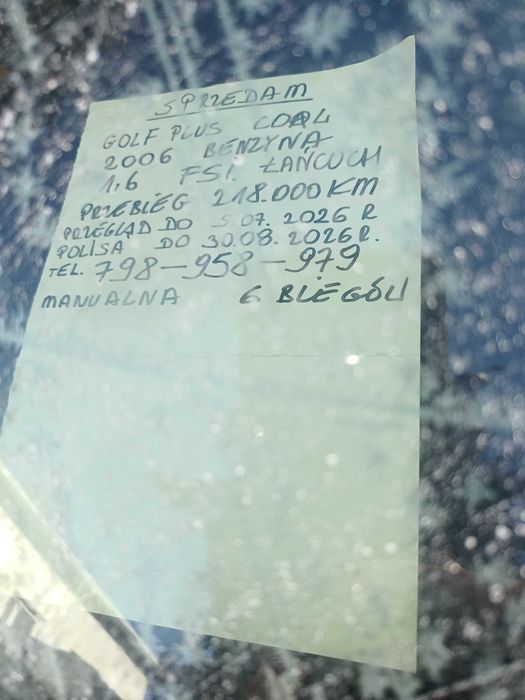 SPRZEDAM
GOLF PLUS GOAL
2006 BENZYNA
1,6 FSI. ŁAŃCUCH
PRZEBIEG 218.000 KM
PRZEGLĄD DO 07. 2026 R
POLISA DO 30.08. 2026 R.
TEL. 798-958-979
MANUALNA 6 BIEGÓW